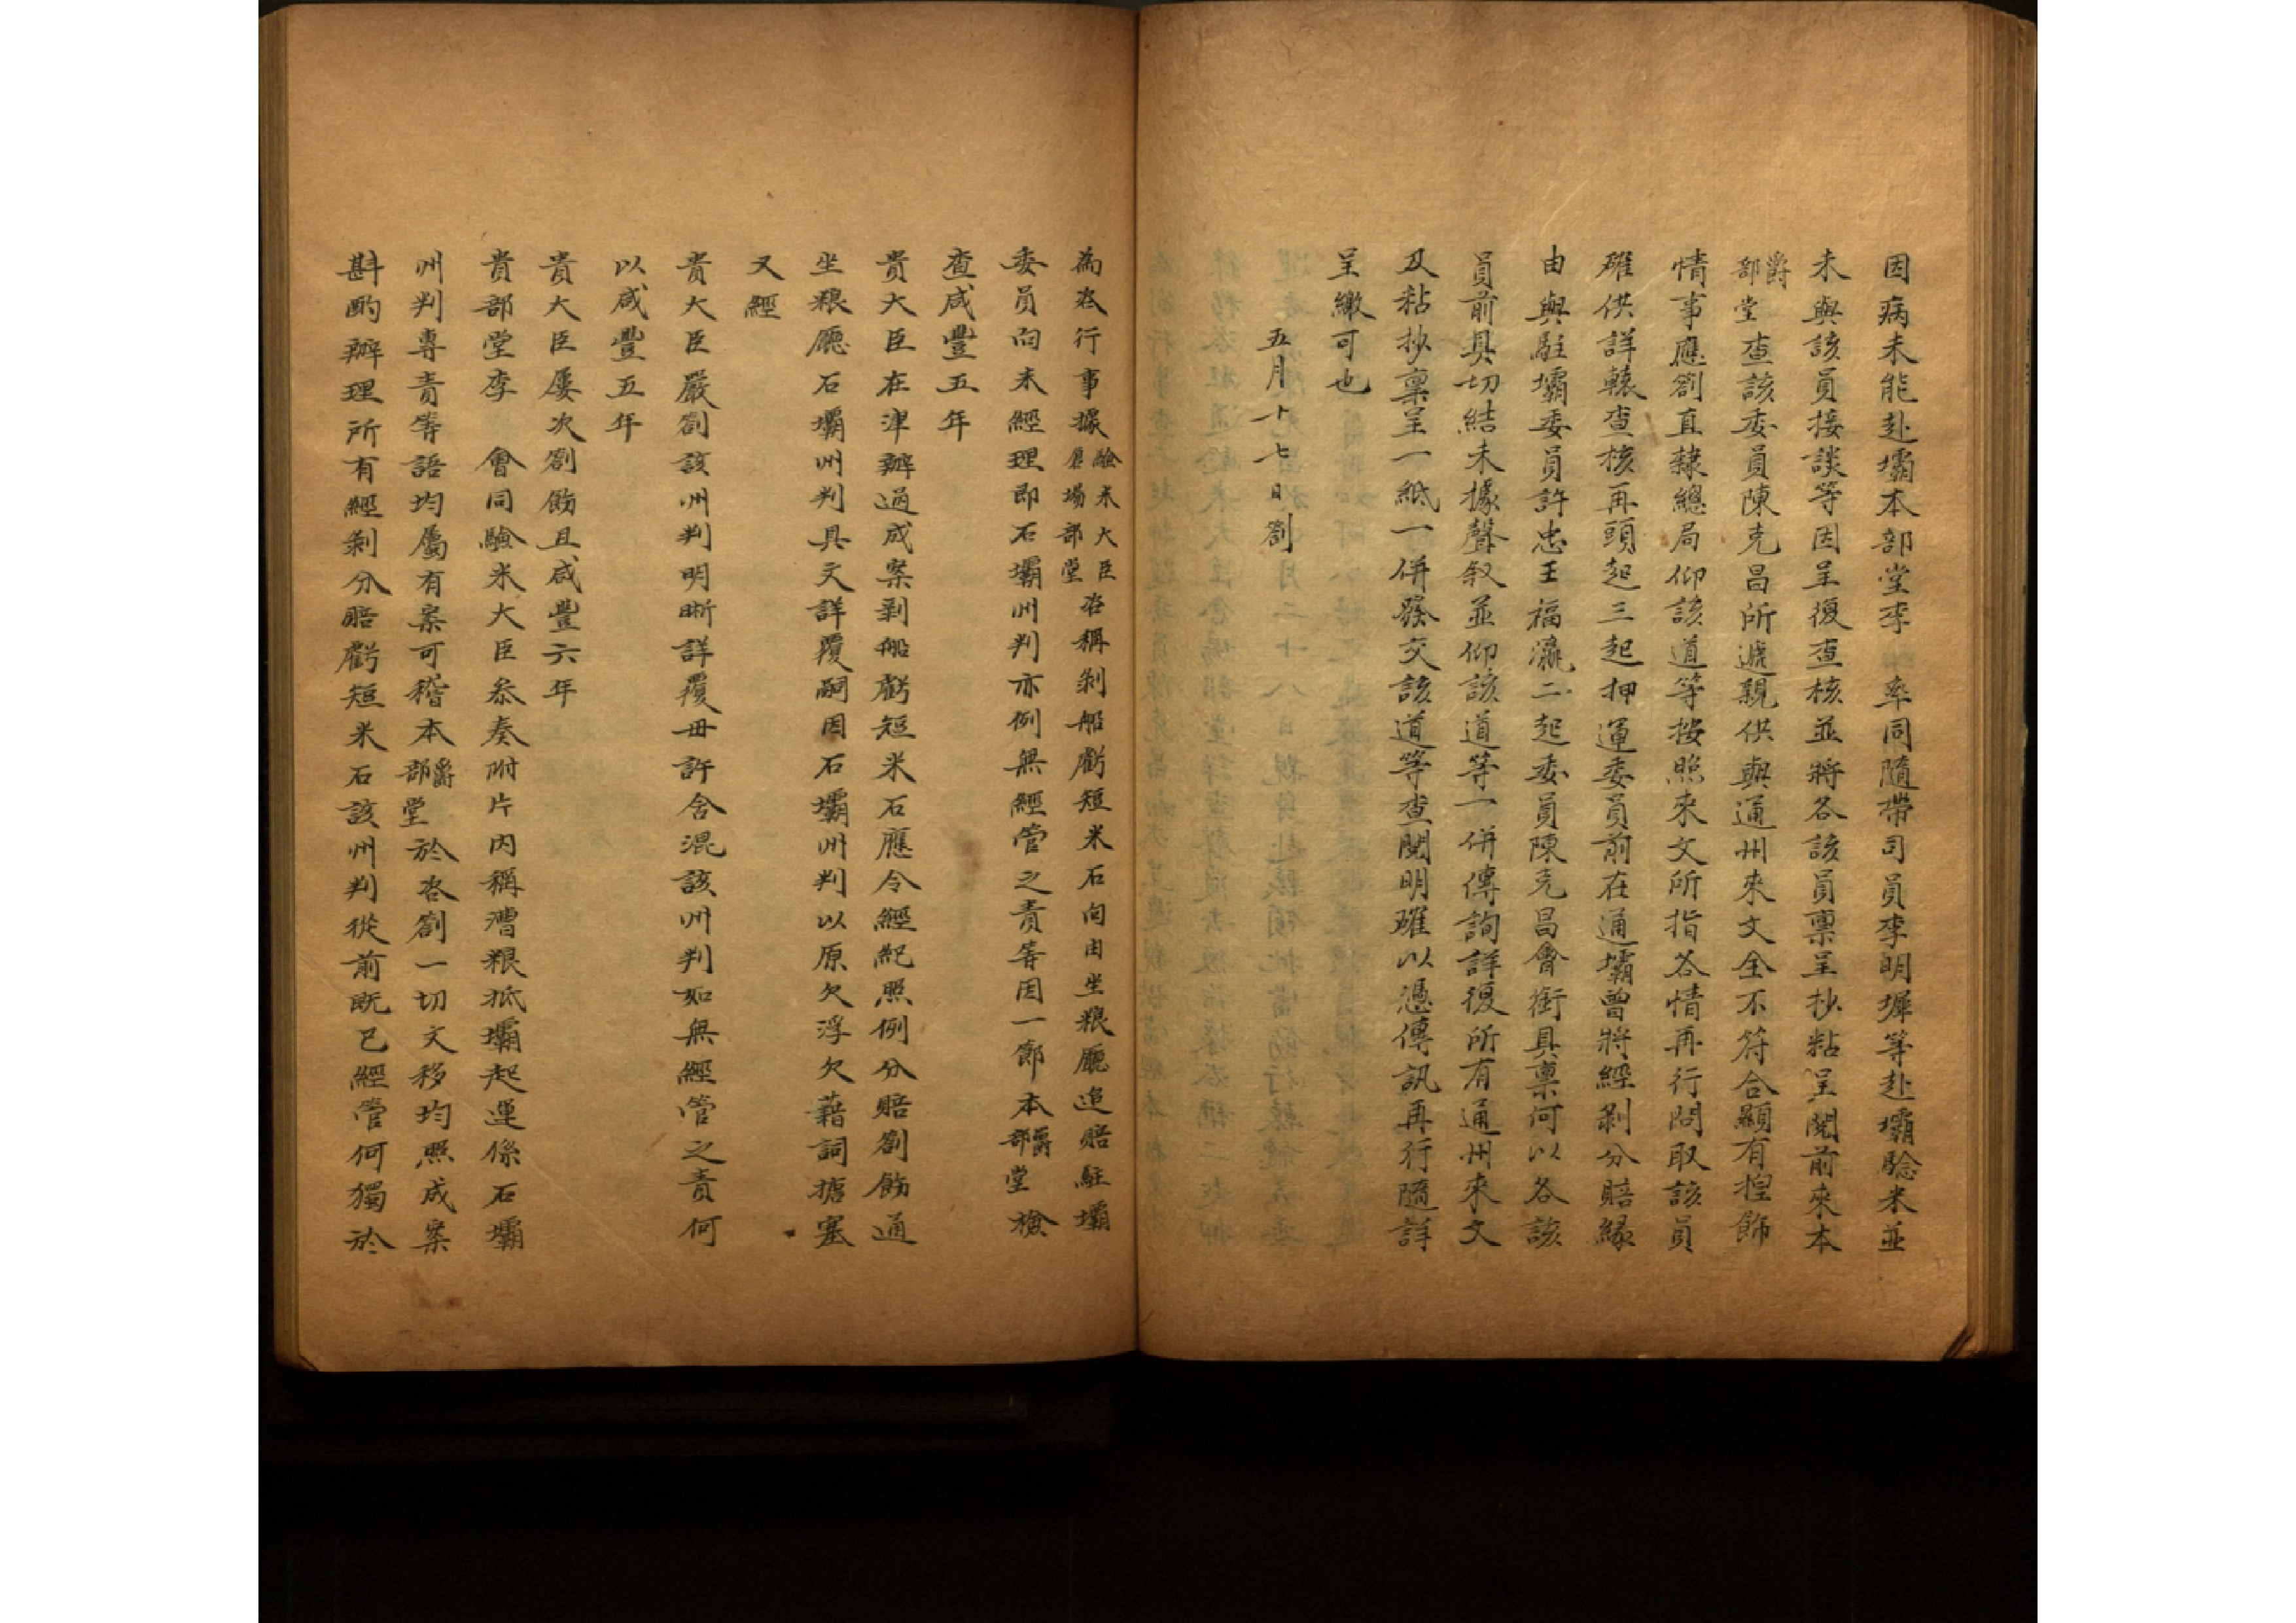 因病未能赴壩本部堂李 率同隨帶司員李明墀等赴壩驗米並
未與該員接談等因呈復查核並將各該員稟呈抄粘呈閱前來本
爵部堂查該委員陳克昌所遞親供與通州來文全不符合顯有揑飾
情事應劄直隸總局仰該道等按照來文所指各情再行問取該員
確供詳轅查核再頭起三起押運委員前在通壩曾將經剝分賠緣
由與駐壩委員許忠王福瀛二起委員陳克昌會銜具稟何以各該
員前具切結未據聲叙並仰該道等一併傳詢詳復所有通州來文
及粘抄稟呈一紙一併發交該道等查閱明確以憑傳訊再行隨詳
呈繳可也
五月十七日劄
為咨行事據驗米大臣倉場部堂咨稱剝船虧短米石向由坐粮廳追賠駐壩
委員向未經理即石壩州判亦例無經管之責等因一節本爵部堂檢
查咸豐五年
貴大臣在津辦過成案剝船虧短米石應令經紀照例分賠劄飭通
坐粮廳石壩州判具文詳覆嗣因石壩州判以原欠浮欠藉詞搪塞
又經
貴大臣嚴劄該州判明晰詳覆毋許含混該州判如無經管之責何
以咸豐五年
貴大臣屢次劄飭且咸豐六年
貴部堂李 會同驗米大臣叅奏附片内稱漕粮抵壩起運係石壩
州判專責等語均屬有案可稽本爵部堂於咨劄一切文移均照成案
斟酌辦理所有經剝分賠虧短米石該州判從前既已經管何獨於